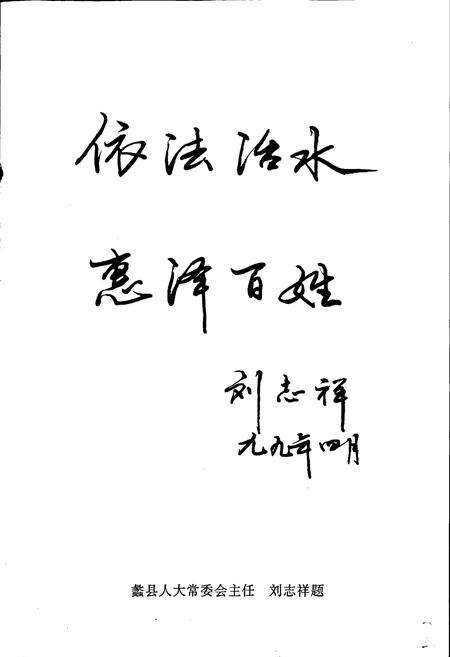 依法治水
惠泽百姓
刘志祥
九九年四月
蠡县人大常委会主任 刘志祥题